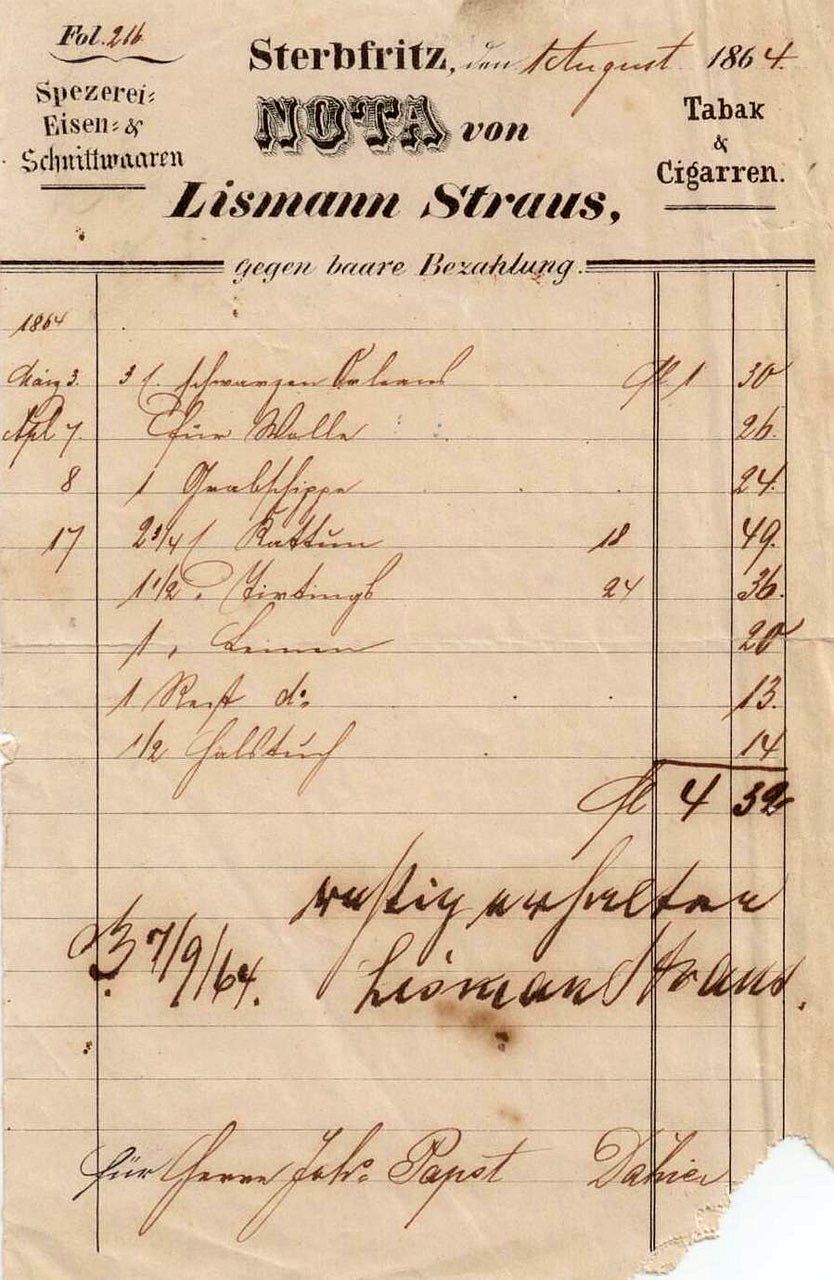 Fol. 216
Sterbfritz, den 1 August 1864.
Spezerei-
Eisen- &
Schnittwaaren
NOTA von
Tabak
&
Cigarren.
Lismann Straus,
gegen baare Bezahlung.
1864
März 3. 3 schwarzen Orleans fl 1 30
Apl 7. für Wolle 26.
8 1 Grabschippe 24.
17 2 3/4 Kattun 18 49.
1 1/2 " Schirtings 24 36.
1 " Leinen 20
1 Rest do 13.
1/2 Halstuch 14
fl 4 32
richtig erhalten
7/9/64. Lisman Straus.
für Herrn Johs Papst Dahier